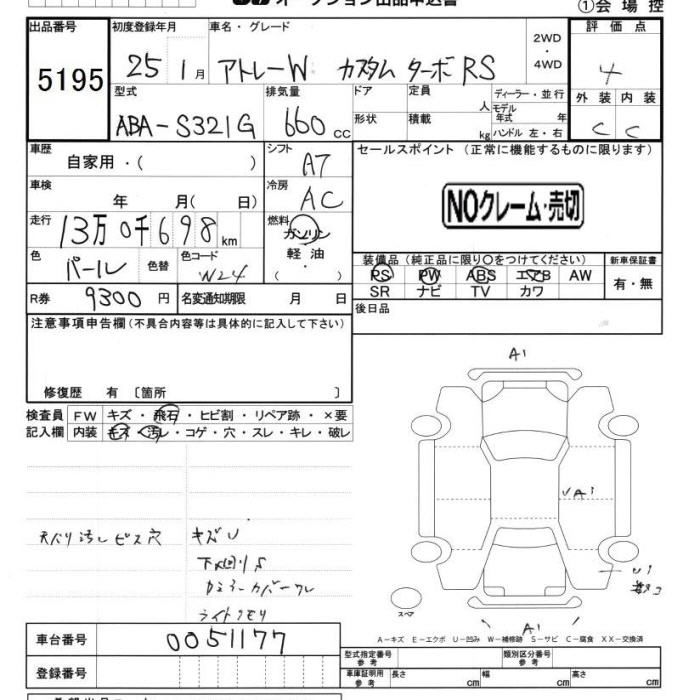 オークション出品申込書
①会場控
出品番号 初度登録年月 車名・グレード 2WD・4WD 評価点
5195 25 1月 アトレーW カスタム ターボ RS 4
型式 排気量 ドア 定員 人 ディーラー・並行 外装 内装
ABA-S321G 660cc 形状 積載 kg モデル年式 年 ハンドル 左・右 C C
車歴 自家用・( ) シフト A7 セールスポイント (正常に機能するものに限ります)
車検 年 月( 日) 冷房 AC
NOクレーム・売切
走行 13万0千698km 燃料 ガソリン 軽油 ( )
色 パール 色替 色コード W24
装備品(純正品に限り〇をつけてください) 新車保証書
PS PW ABS エアB AW 有・無
SR ナビ TV カワ
R券 9300円 名変通知期限 月 日
後日品
注意事項申告欄(不具合内容等は具体的に記入して下さい)
修復歴 有〔箇所 〕
検査員 FW キズ・飛石・ヒビ割・リペア跡・×要
記入欄 内装 キズ・汚レ・コゲ・穴・スレ・キレ・破レ
A1
UA1
U1
スペア
A1
天バリ汚し ビス穴 キズU
下回りS
カバーワレ
ライトクモリ
A-キズ E-エクボ U-凹み W-補修跡 S-サビ C-腐食 XX-交換済
車台番号 0051177
登録番号
型式指定番号 参考 類別区分番号 参考
車庫証明用 参考 長さ cm 幅 cm 高さ cm